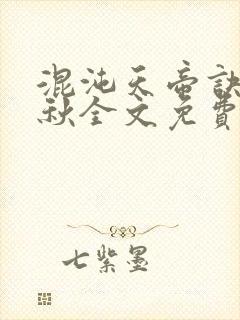 混沌天帝訣
秋全文免費
七紫墨